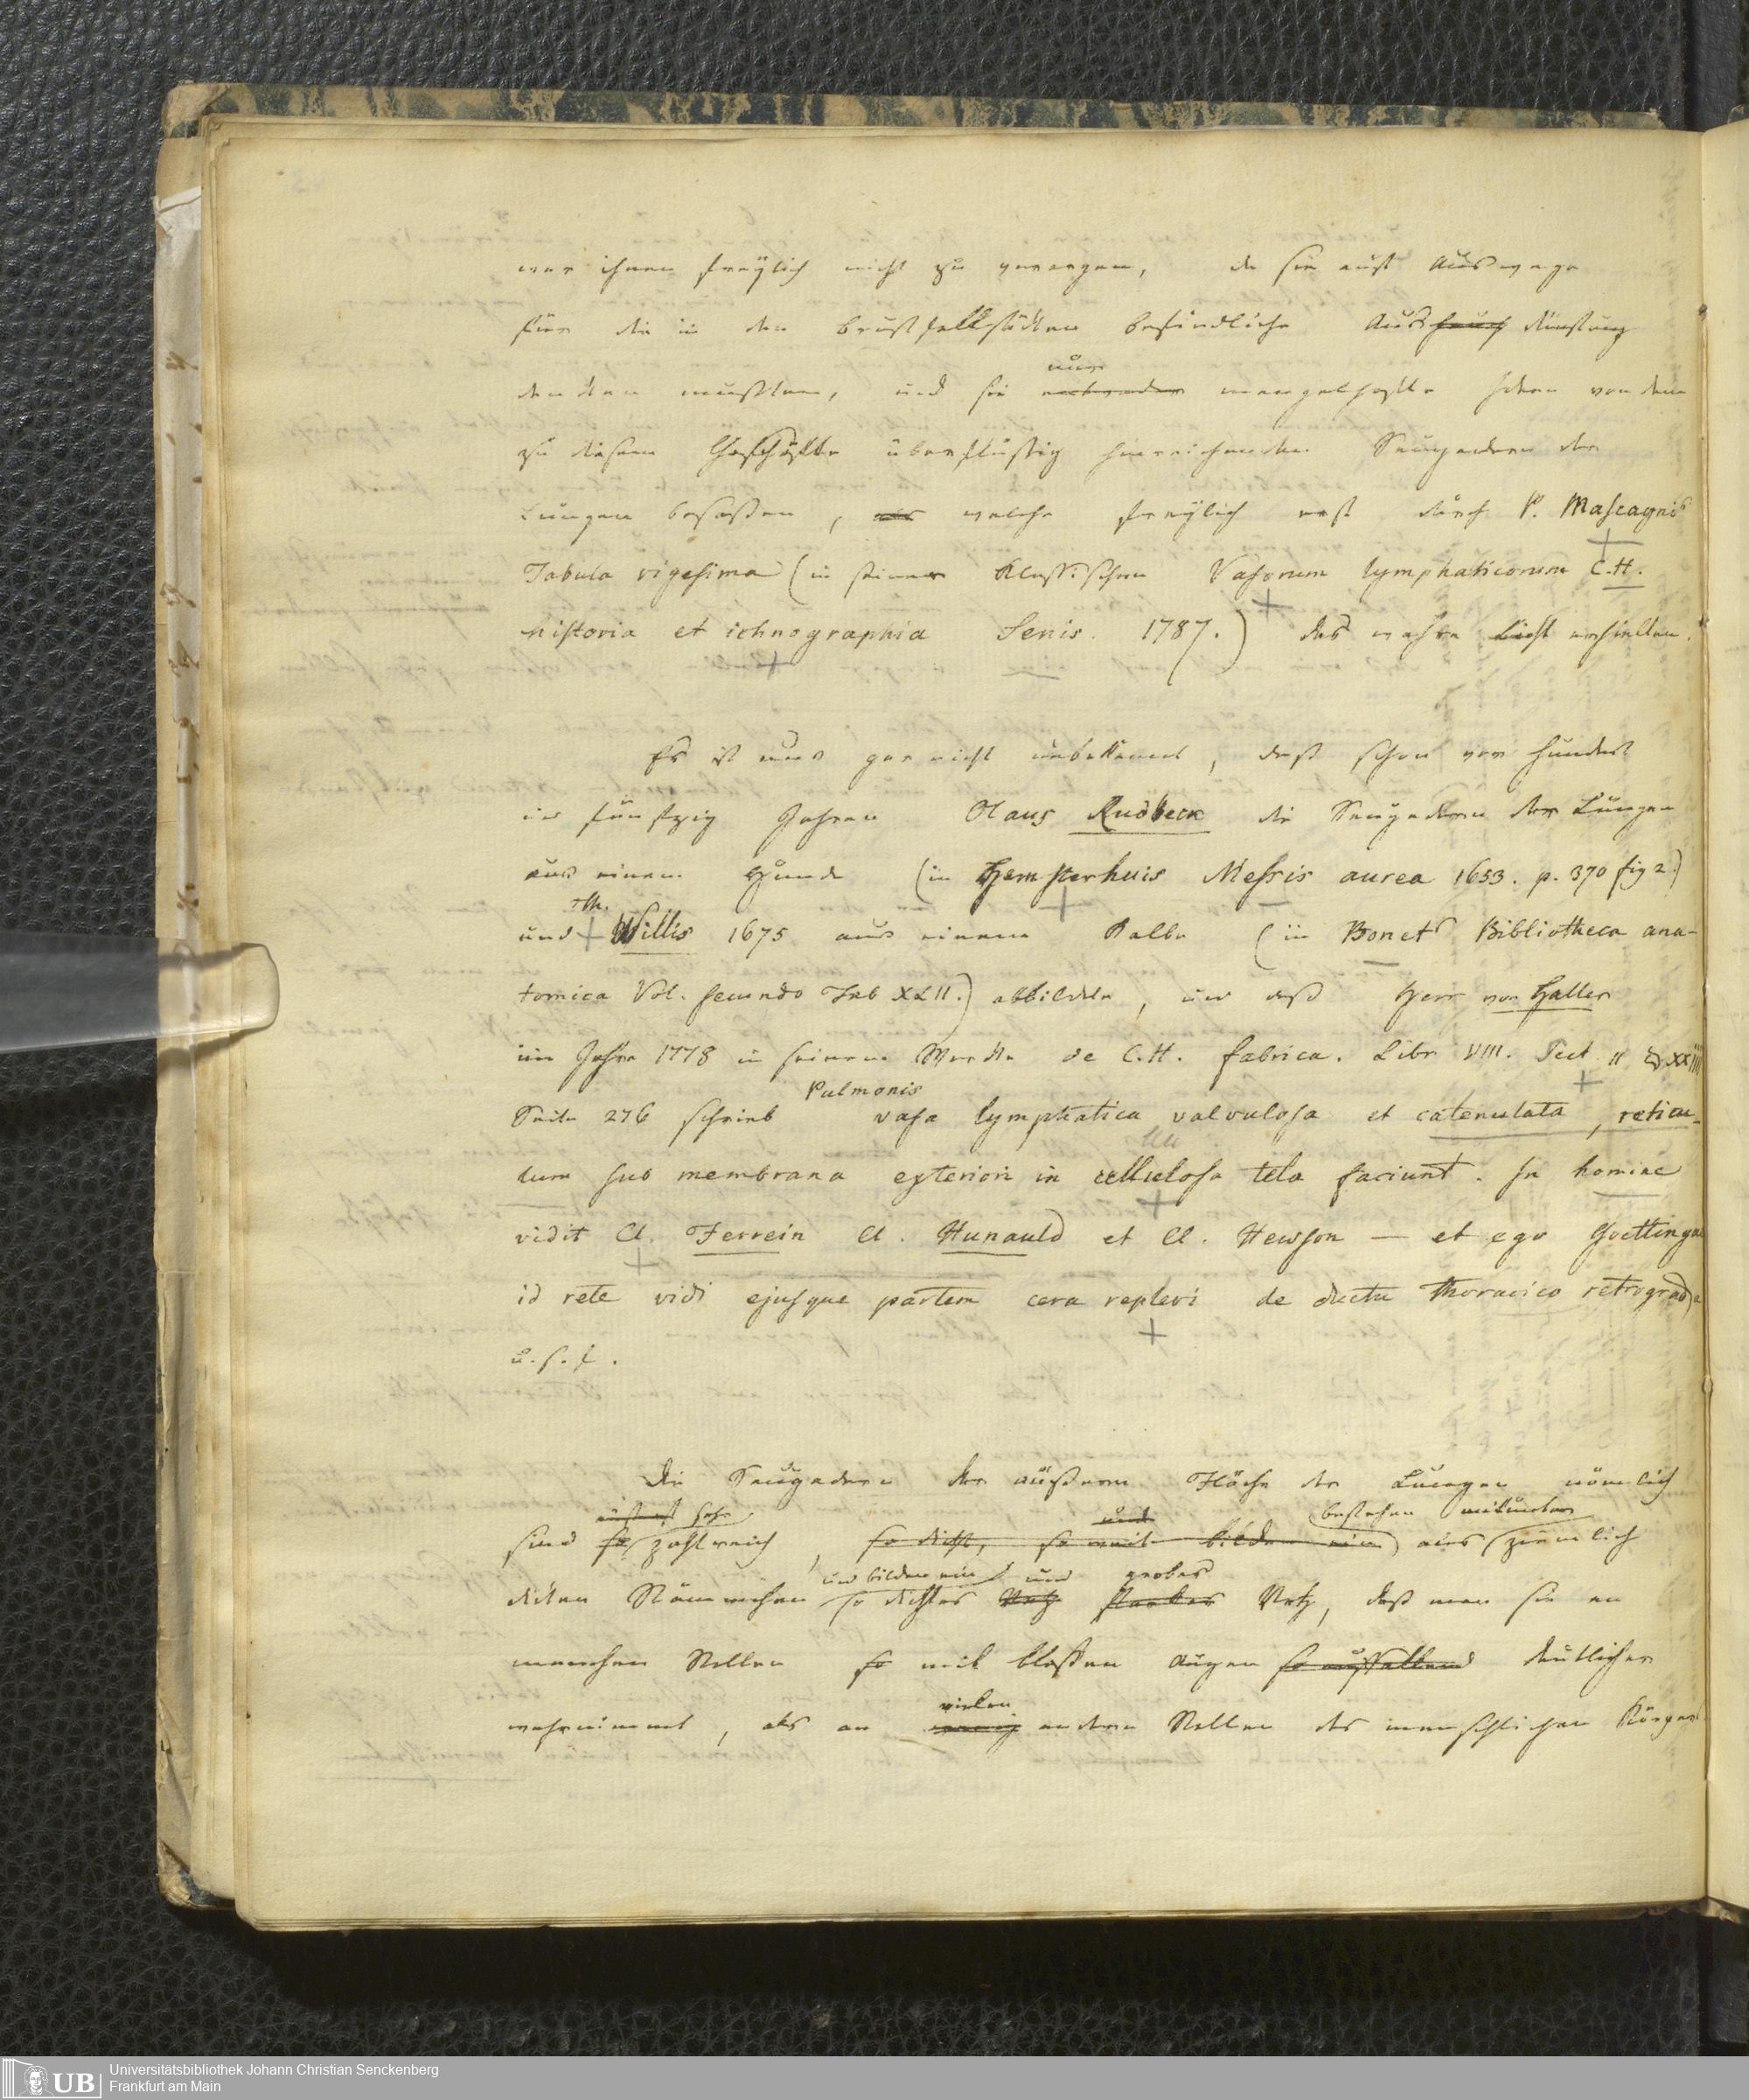 war ihnen freÿlich nicht zu verargen, da sie auf Auswege
für die in den Brustfellsäcken befindliche Ausdünstung
denken mussten, und sie nur mangelhafte Ideen von den
zu diesem Geschäfte überflüssig hinreichenden Saugadern der
Lungen besassen, welche freÿlich erst durch P. Mascagnis
Tabula vigesima (in seiner klassischen Vasorum lymphaticorum C.H.
historia et ichnographia Senis. 1787.) das wahre Licht erhielten.
Es ist uns gar nicht unbekannt, dass schon vor hundert
und fünfzig Jahren Olaus Rudbeck die Saugadern der Lungen
aus einem Hunde (in Hemsterhuis Messis aurea 1653. p. 370 fig 2.)
und Th. Willis 1675 aus einem Kalbe (in Bonets Bibliotheca ana-
tomica Vol. secundo Tab XLII.) abbildete, und dass Herr von Haller
im Jahre 1778 in seinem Werke de C.H. fabrica. Libr VIII. Sect II § XXIII
Seite 276 schrieb Pulmonis vasa lymphatica valvulosa et catenulata, reticu-
lum sub membrana exteriori in cellulosa tela faciunt. In homine
vidit Cl. Ferrein Cl. Hunauld et Cl. Hewson — et ego Goettingae
id rete vidi ejusque partem cera replevi de ductu thoracico retrograda
u.s.f.
Die Saugadern der äussern Fläche der Lungen nämlich
äusserst sehr und bestehen mitunter
sind so zahlreich, so dicht, so weit bilden ein aus ziemlich
und bilden ein und grobes
dicken Stämmchen so dichtes Netz starkes Netz, dass man sie an
manchen Stellen so mit blossen Augen so auffallend deutlicher
vielen
wahrnimmt, als an wenig andern Stellen des menschlichen Körpers
Universitätsbibliothek Johann Christian Senckenberg
UB Frankfurt am Main